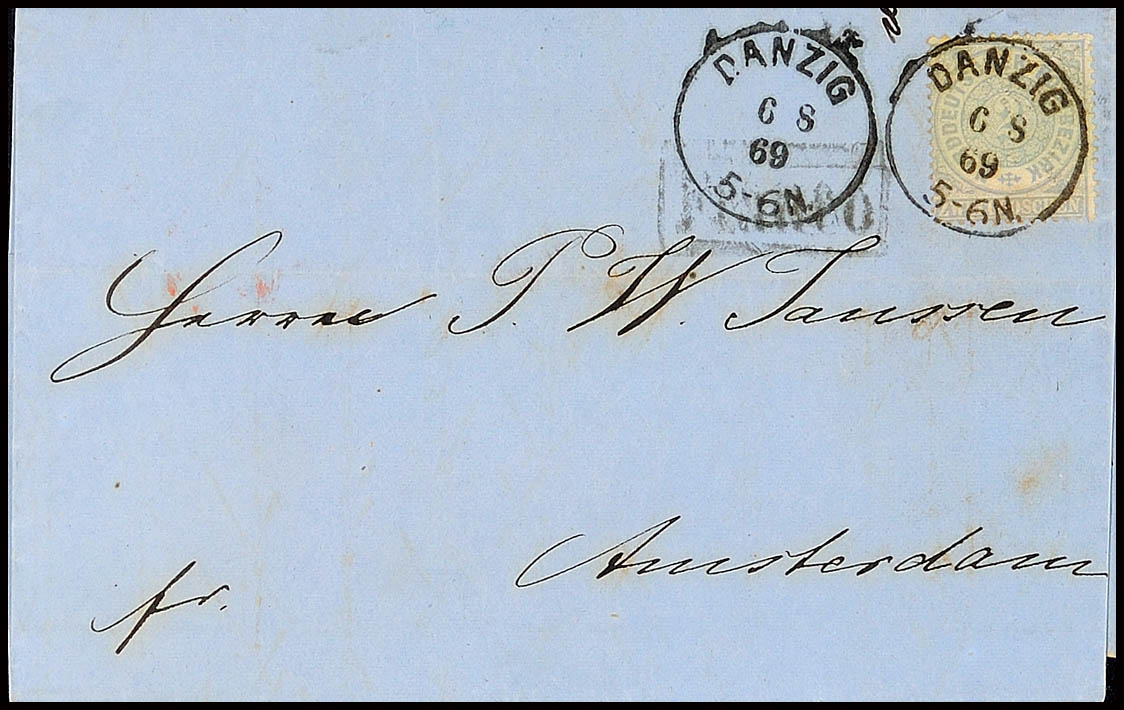 DANZIG
6 8
69
5-6N.
DANZIG
6 8
69
5-6N.
FRANCO
DDEUTS BEZIRK
Herren P. W. Janssen
Amsterdam
fr.